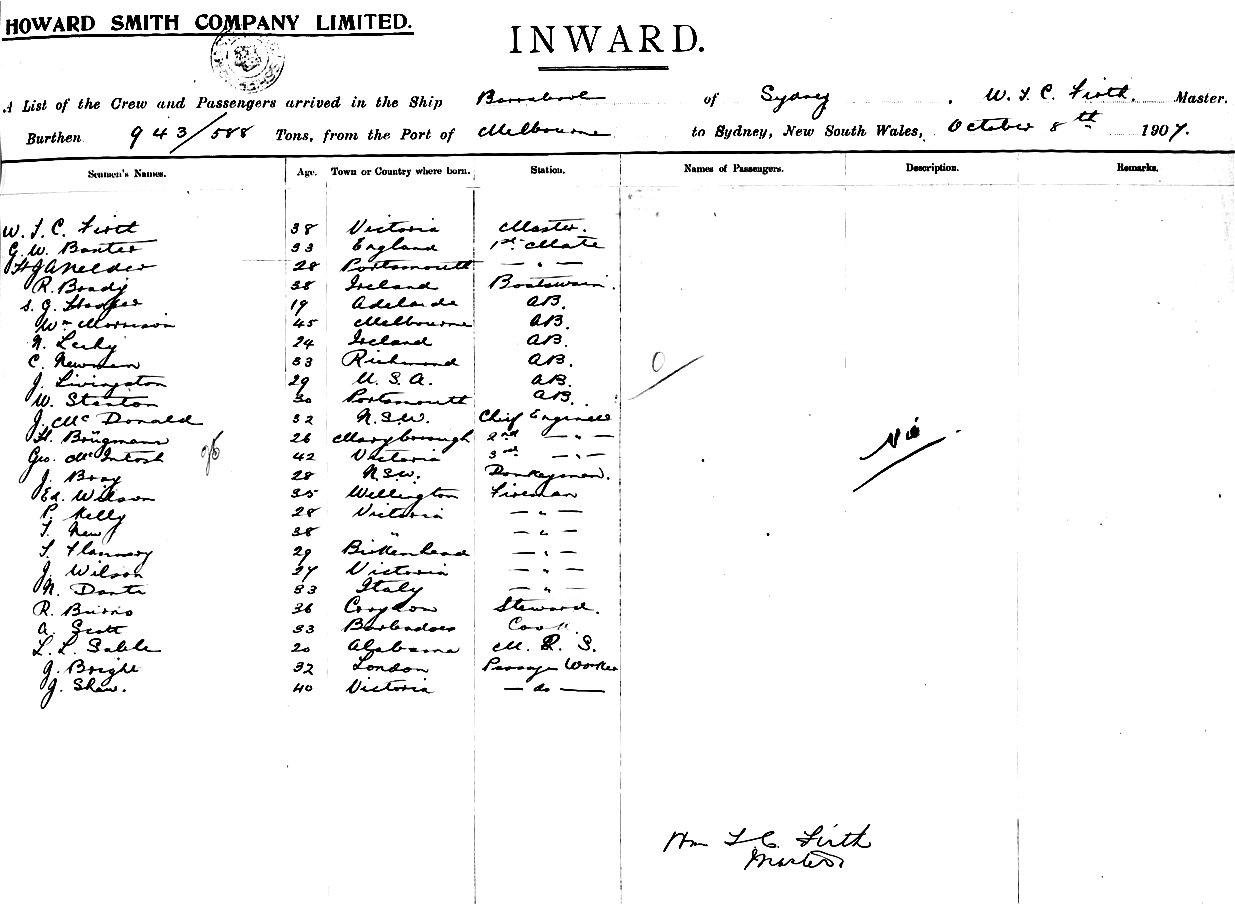 HOWARD SMITH COMPANY LIMITED.
INWARD.
A List of the Crew and Passengers arrived in the Ship Barrabool of Sydney, W. T. C. Firth. Master.
Burthen 943/588 Tons, from the Port of Melbourne to Sydney, New South Wales, October 8th 1907.
Seamen's Names. Age. Town or Country where born. Station. Names of Passengers. Description. Remarks.
W. T. C. Firth 38 Victoria Master.
G. W. Banter 33 England 1st Mate
28 Portsmouth — " —
R. Brady 38 Ireland Boatswain.
S. G. Hooper 19 Adelaide AB.
Wm Morrison 45 Melbourne AB.
N. Leahy 24 Ireland AB.
C. Newman 33 Richmond AB.
J. Livingston 29 U. S. A. AB.
W. Stanton 30 Portsmouth AB.
J. McDonald 32 N.S.W. Chief Engineer
H. Brügmann 26 Maryborough 2nd — " —
Geo. McIntosh 42 Victoria 3rd — " —
J. Bray 28 N.S.W. Donkeyman.
Ed. Wilson 35 Wellington Fireman
P. Kelly 28 Victoria — " —
T. New 38 " — " —
T. Flannery 29 Birkenhead — " —
J. Wilson 27 Victoria — " —
N. Dante 33 Italy — " —
R. Burns 36 Croydon Steward.
A. Scott 33 Barbadoes Cook
L. L. Sable 20 Alabama M. R. S.
J. Bright 32 London Passage Worker
J. Shaw. 40 Victoria — do —
Nil
Wm T. C. Firth
Master